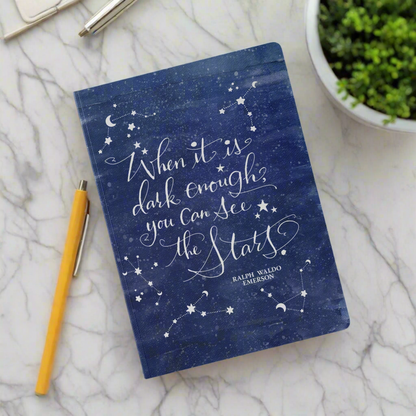 When it is
dark enough?
you can see
the Stars
RALPH WALDO
EMERSON